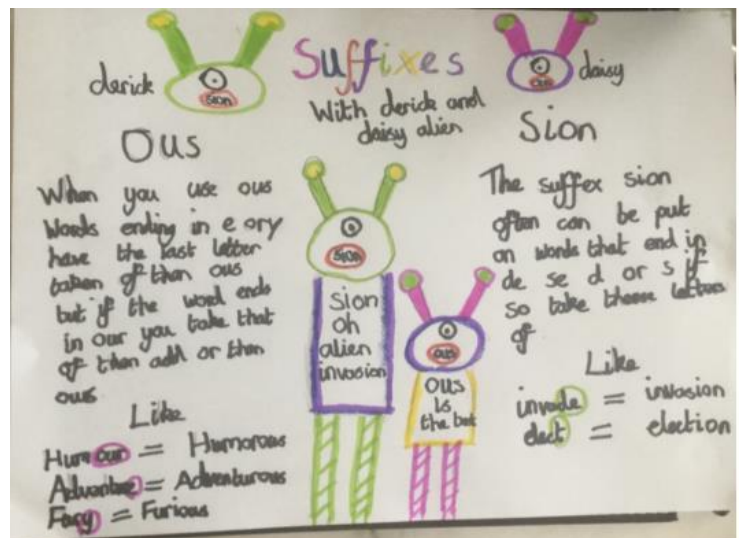 Suffixes
With derick and
daisy alien
derick
sion
ous
daisy
Ous
When you use ous
words ending in e or y
have the last letter
taken of than ous
but if the word ends
in our you take that
of then add or then
ous
Like
Humour = Humorous
Adventure = Adventurous
Fury = Furious
sion
sion
oh
alien
invasion
ous
Ous
is
the best
Sion
The suffex sion
often can be put
on words that end in
de se d or s if
so take these letters
of
Like
invade = invasion
elect = election